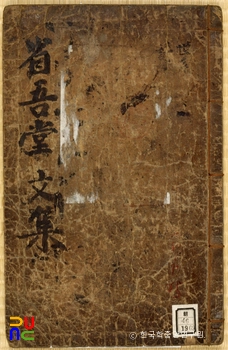 省吾堂文集
© 한국학중앙연구원